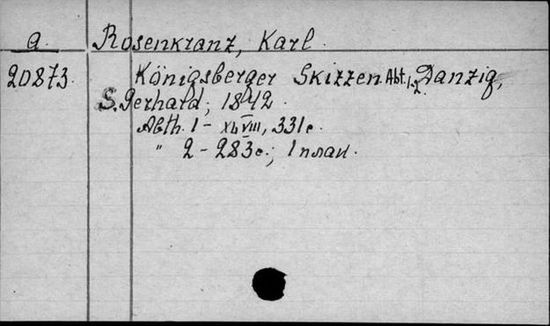 a.
Rosenkranz, Karl.
20873.
Königsberger Skizzen Abt. 1-2. Danzig,
S. Gerhard, 1842.
Abth. 1 - XLVIII, 331 с.
" 2 - 283 с.; 1 план.